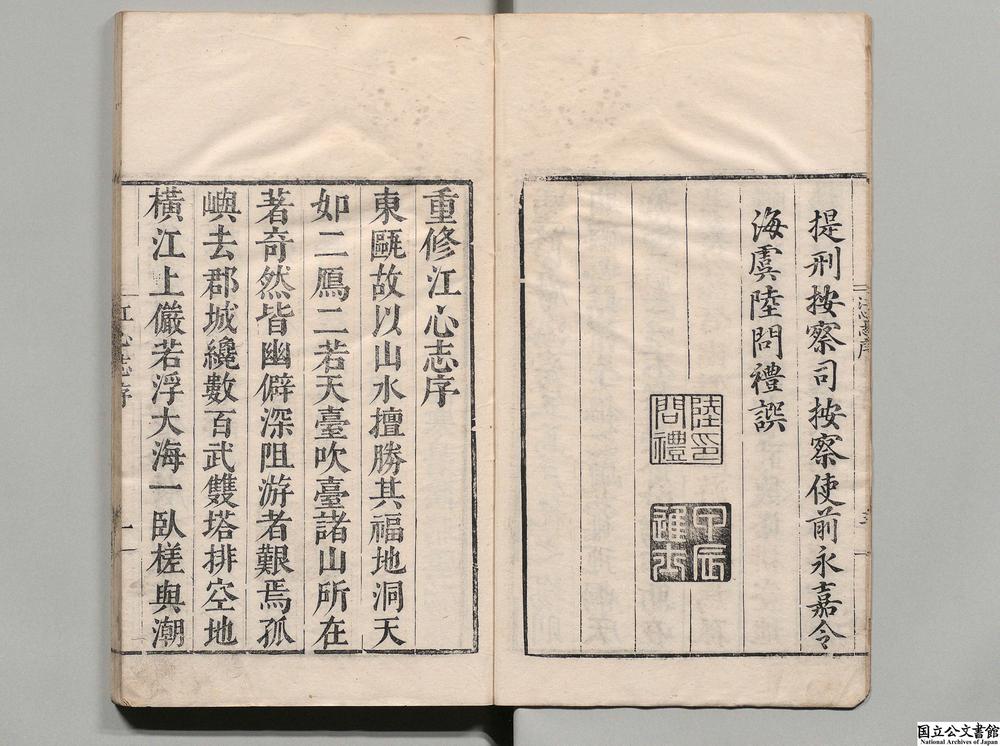 提刑按察司按察使前永嘉令
海虞陸問禮譔
陸問禮印
甲辰進士
重修江心志序
東甌故以山水擅勝其福地洞天
如二鴈二若天臺吹臺諸山所在
著奇然皆幽僻深阻游者艱焉孤
嶼去郡城纔數百武雙塔排空地
橫江上儼若浮大海一臥槎與潮
江心志序
一
国立公文書館
National Archives of Japan